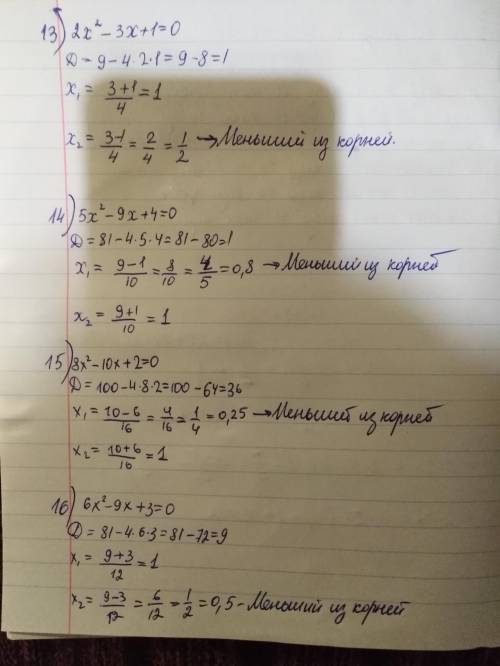 13) 2x² - 3x + 1 = 0
D = 9 - 4·2·1 = 9 - 8 = 1
x₁ = (3+1)/4 = 1
x₂ = (3-1)/4 = 2/4 = 1/2 → Меньший из корней.
14) 5x² - 9x + 4 = 0
D = 81 - 4·5·4 = 81 - 80 = 1
x₁ = (9-1)/10 = 8/10 = 4/5 = 0,8 → Меньший из корней
x₂ = (9+1)/10 = 1
15) 8x² - 10x + 2 = 0
D = 100 - 4·8·2 = 100 - 64 = 36
x₁ = (10-6)/16 = 4/16 = 1/4 = 0,25 → Меньший из корней
x₂ = (10+6)/16 = 1
16) 6x² - 9x + 3 = 0
D = 81 - 4·6·3 = 81 - 72 = 9
x₁ = (9+3)/12 = 1
x₂ = (9-3)/12 = 6/12 = 1/2 = 0,5 - Меньший из корней